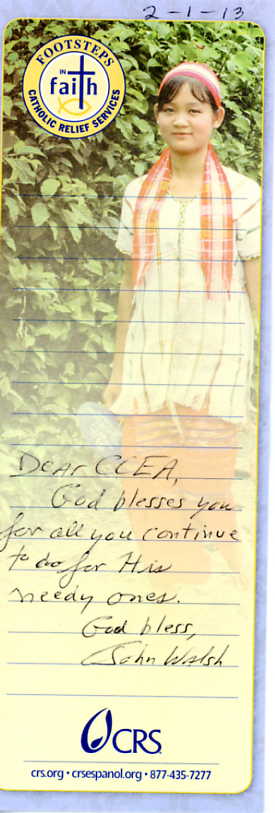 2-1-13
FOOTSTEPS
IN
faith
CATHOLIC RELIEF SERVICES
Dear CCEA,
God blesses you
for all you continue
to do for His
needy ones.
God bless,
John Walsh
CRS
crs.org • crsespanol.org • 877-435-7277